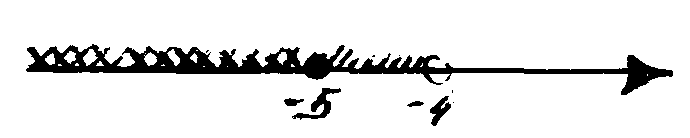 -5 -4